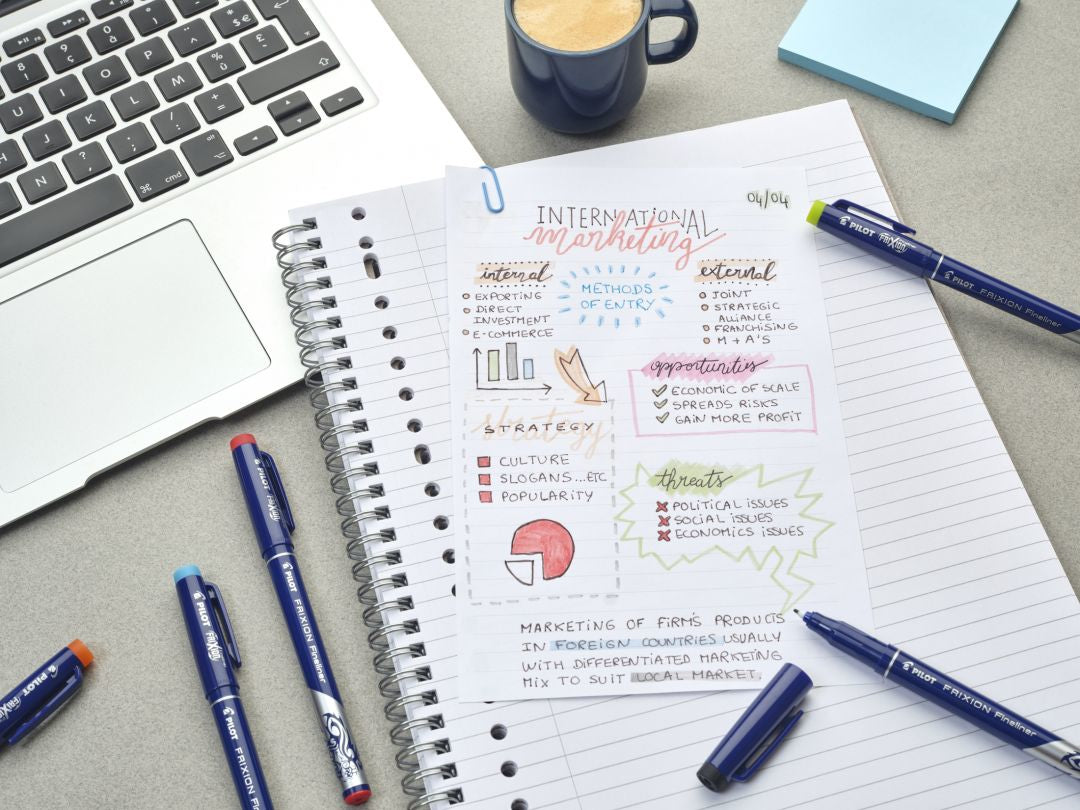 04/04
INTERNATIONAL
marketing
internal
EXPORTING
DIRECT
INVESTMENT
E-COMMERCE
METHODS
OF ENTRY
external
JOINT
STRATEGIC
ALLIANCE
FRANCHISING
M + A'S
opportunities
ECONOMIC OF SCALE
SPREADS RISKS
GAIN MORE PROFIT
strategy
STRATEGY
CULTURE
SLOGANS...ETC
POPULARITY
threats
POLITICAL ISSUES
SOCIAL ISSUES
ECONOMICS ISSUES
MARKETING OF FIRM'S PRODUCTS
IN FOREIGN COUNTRIES USUALLY
WITH DIFFERENTIATED MARKETING
MIX TO SUIT LOCAL MARKET.
PILOT FRIXION
PILOT FRIXION Fineliner
PILOT FRIXION
PILOT FRIXION Fineliner
PILOT FRIXION
PILOT FRIXION Fineliner
PILOT FRIXION
PILOT FRIXION Fineliner
U
I
O
P
J
K
L
M
H
N
?
;
:
/
+
=
%
ù
£
$
€
*
^
alt
cmd